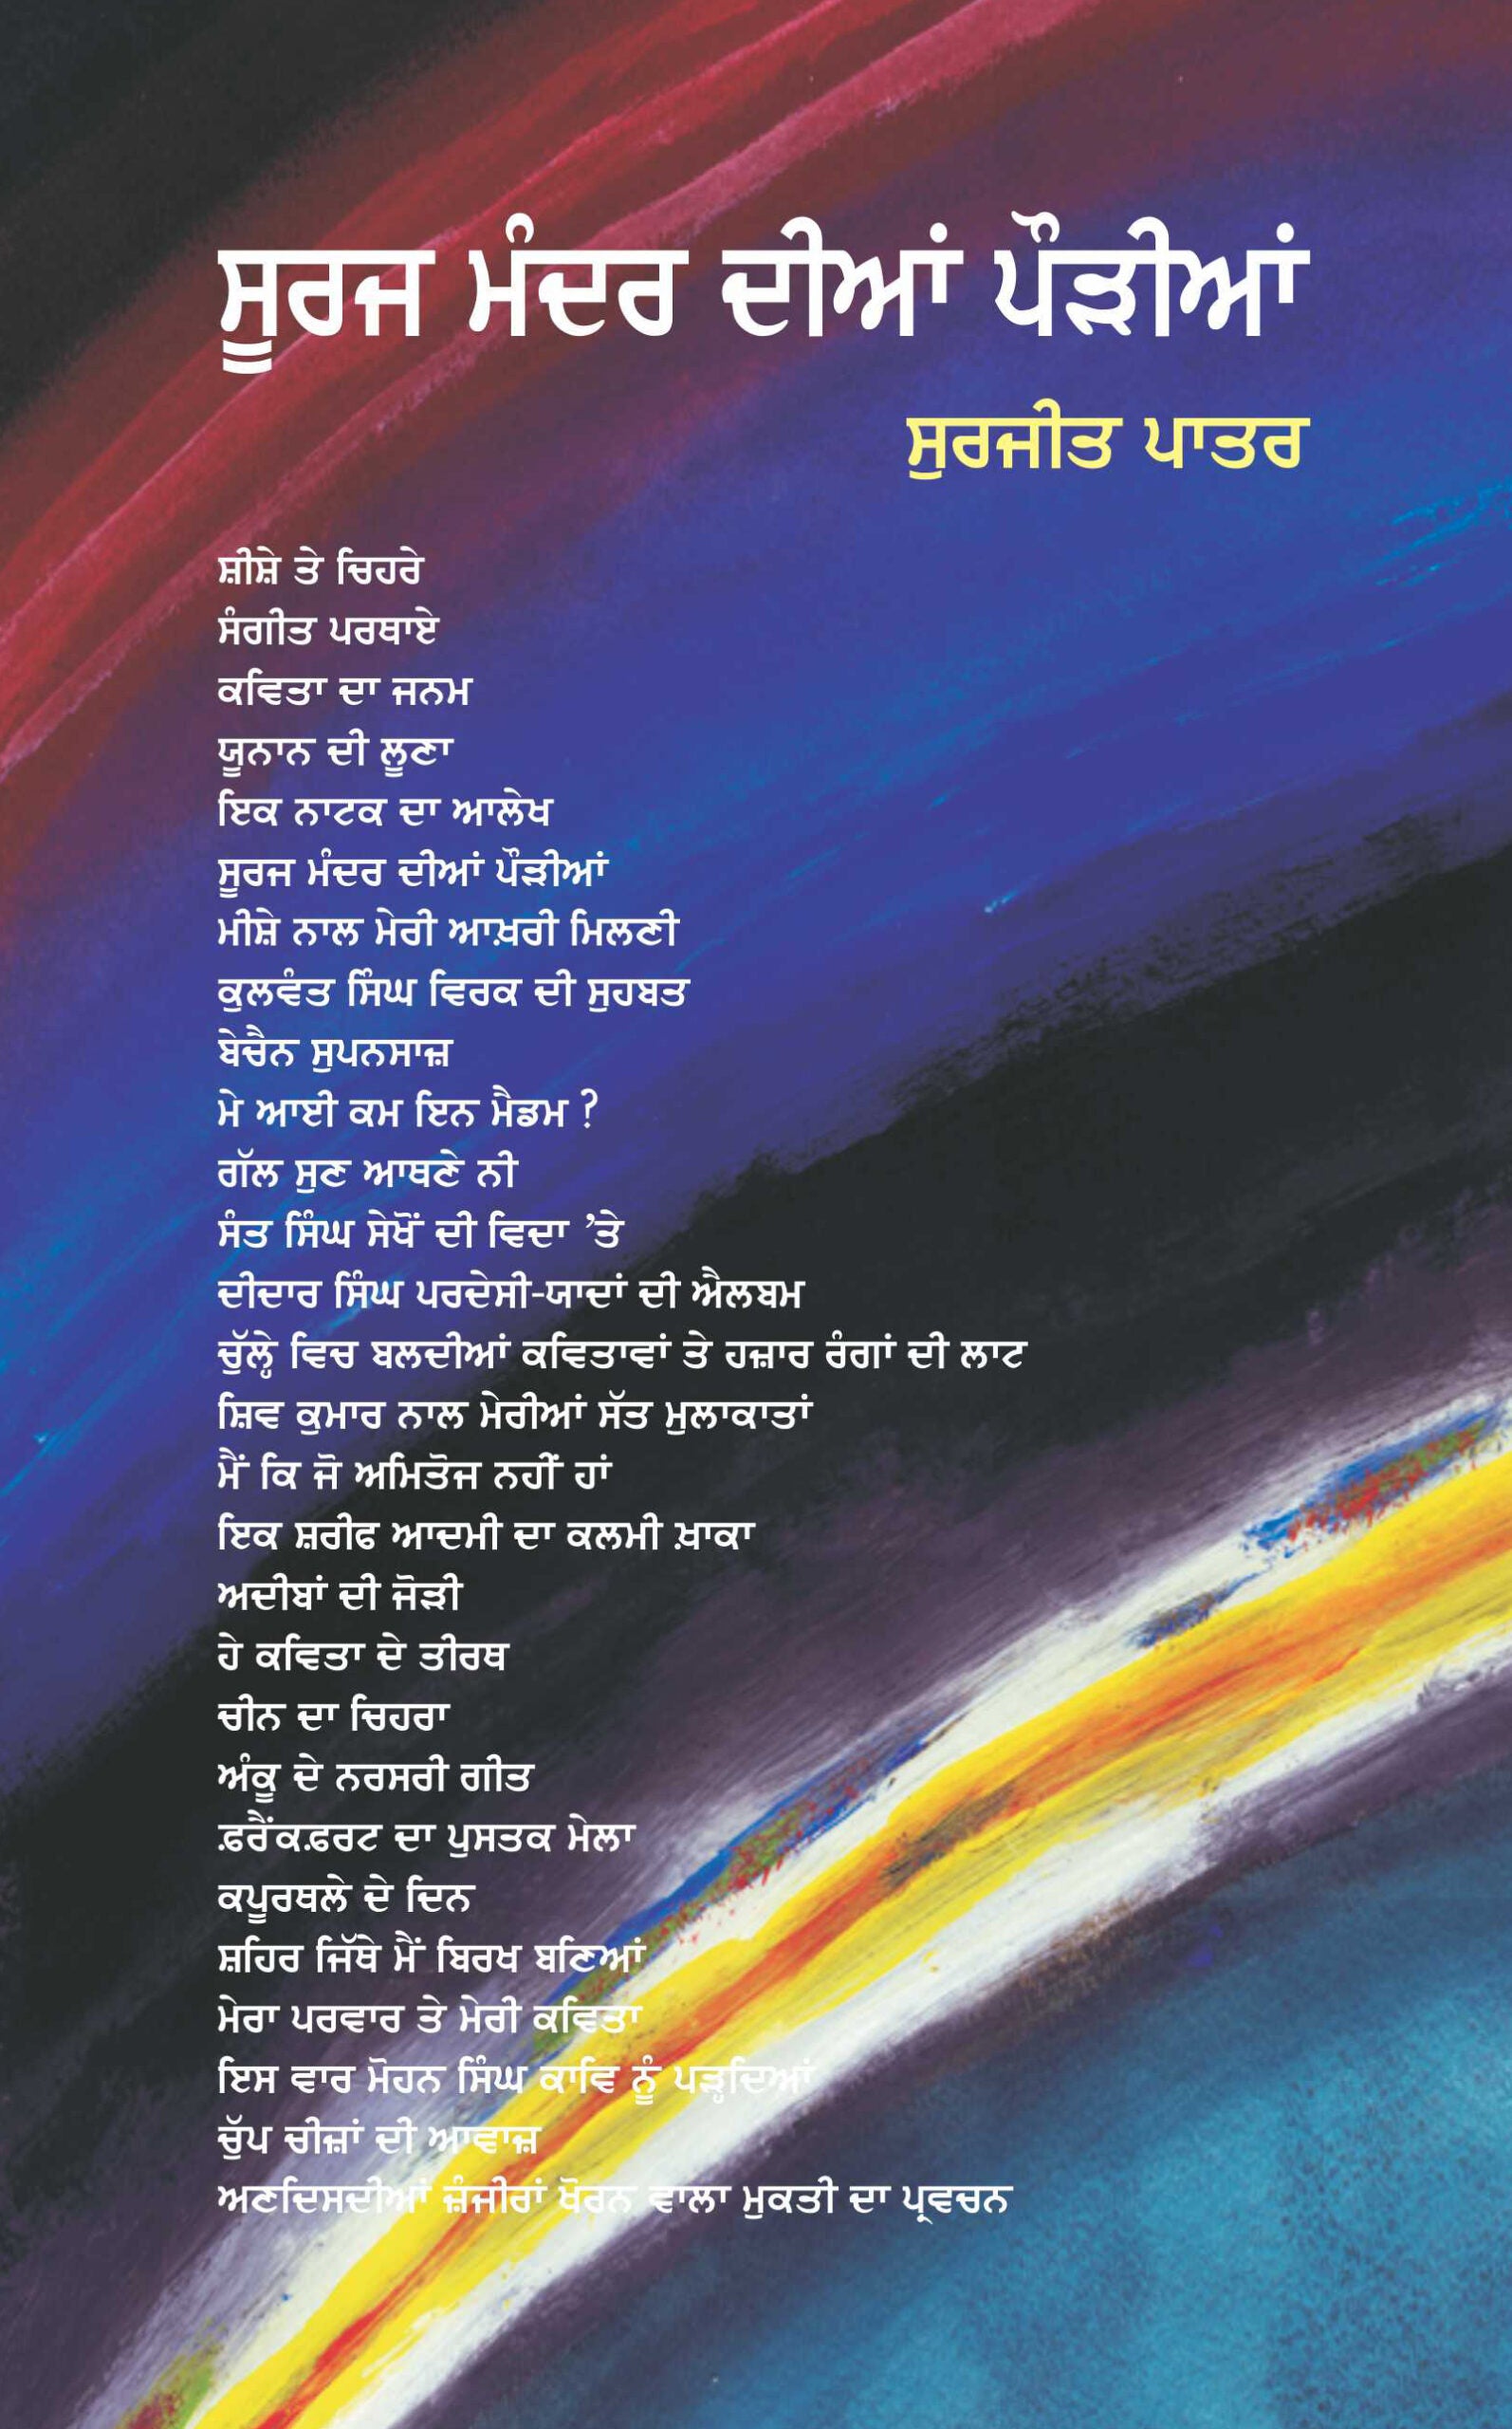 ਸੂਰਜ ਮੰਦਰ ਦੀਆਂ ਪੌੜੀਆਂ
ਸੁਰਜੀਤ ਪਾਤਰ
ਸ਼ੀਸ਼ੇ ਤੇ ਚਿਹਰੇ
ਸੰਗੀਤ ਪਰਥਾਏ
ਕਵਿਤਾ ਦਾ ਜਨਮ
ਯੂਨਾਨ ਦੀ ਲੂਣਾ
ਇਕ ਨਾਟਕ ਦਾ ਆਲੇਖ
ਸੂਰਜ ਮੰਦਰ ਦੀਆਂ ਪੌੜੀਆਂ
ਮੀਸ਼ੇ ਨਾਲ ਮੇਰੀ ਆਖ਼ਰੀ ਮਿਲਣੀ
ਕੁਲਵੰਤ ਸਿੰਘ ਵਿਰਕ ਦੀ ਸੁਹਬਤ
ਬੇਚੈਨ ਸੁਪਨਸਾਜ਼
ਮੇ ਆਈ ਕਮ ਇਨ ਮੈਡਮ ?
ਗੱਲ ਸੁਣ ਆਥਣੇ ਨੀ
ਸੰਤ ਸਿੰਘ ਸੇਖੋਂ ਦੀ ਵਿਦਾ ’ਤੇ
ਦੀਦਾਰ ਸਿੰਘ ਪਰਦੇਸੀ-ਯਾਦਾਂ ਦੀ ਐਲਬਮ
ਚੁੱਲ੍ਹੇ ਵਿਚ ਬਲਦੀਆਂ ਕਵਿਤਾਵਾਂ ਤੇ ਹਜ਼ਾਰ ਰੰਗਾਂ ਦੀ ਲਾਟ
ਸ਼ਿਵ ਕੁਮਾਰ ਨਾਲ ਮੇਰੀਆਂ ਸੱਤ ਮੁਲਾਕਾਤਾਂ
ਮੈਂ ਕਿ ਜੋ ਅਮਿਤੋਜ ਨਹੀਂ ਹਾਂ
ਇਕ ਸ਼ਰੀਫ ਆਦਮੀ ਦਾ ਕਲਮੀ ਖ਼ਾਕਾ
ਅਦੀਬਾਂ ਦੀ ਜੋੜੀ
ਹੇ ਕਵਿਤਾ ਦੇ ਤੀਰਥ
ਚੀਨ ਦਾ ਚਿਹਰਾ
ਅੰਕੂ ਦੇ ਨਰਸਰੀ ਗੀਤ
ਫ਼ਰੈਂਕਫ਼ਰਟ ਦਾ ਪੁਸਤਕ ਮੇਲਾ
ਕਪੂਰਥਲੇ ਦੇ ਦਿਨ
ਸ਼ਹਿਰ ਜਿੱਥੇ ਮੈਂ ਬਿਰਖ ਬਣਿਆਂ
ਮੇਰਾ ਪਰਵਾਰ ਤੇ ਮੇਰੀ ਕਵਿਤਾ
ਇਸ ਵਾਰ ਮੋਹਨ ਸਿੰਘ ਕਾਵਿ ਨੂੰ ਪੜ੍ਹਦਿਆਂ
ਚੁੱਪ ਚੀਜ਼ਾਂ ਦੀ ਆਵਾਜ਼
ਅਣਦਿਸਦੀਆਂ ਜ਼ੰਜੀਰਾਂ ਖੋਰਨ ਵਾਲਾ ਮੁਕਤੀ ਦਾ ਪ੍ਰਵਚਨ